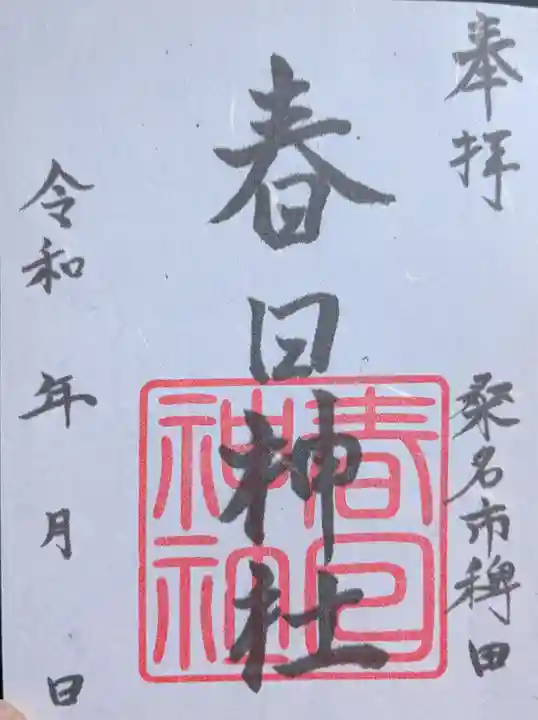 奉拝
桑名市稗田
春日神社
春日
神社
令和　年　月　日